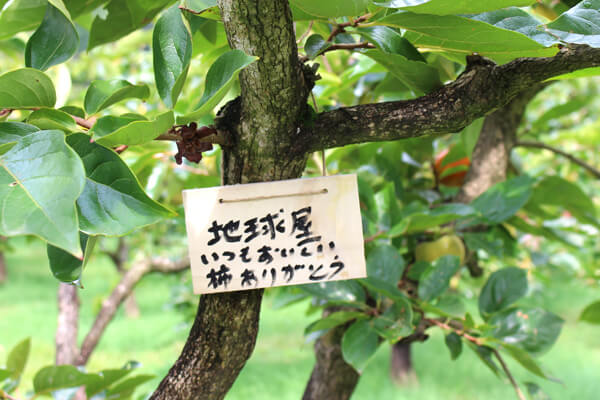 地球屋
いつもおいしい
柿ありがとう